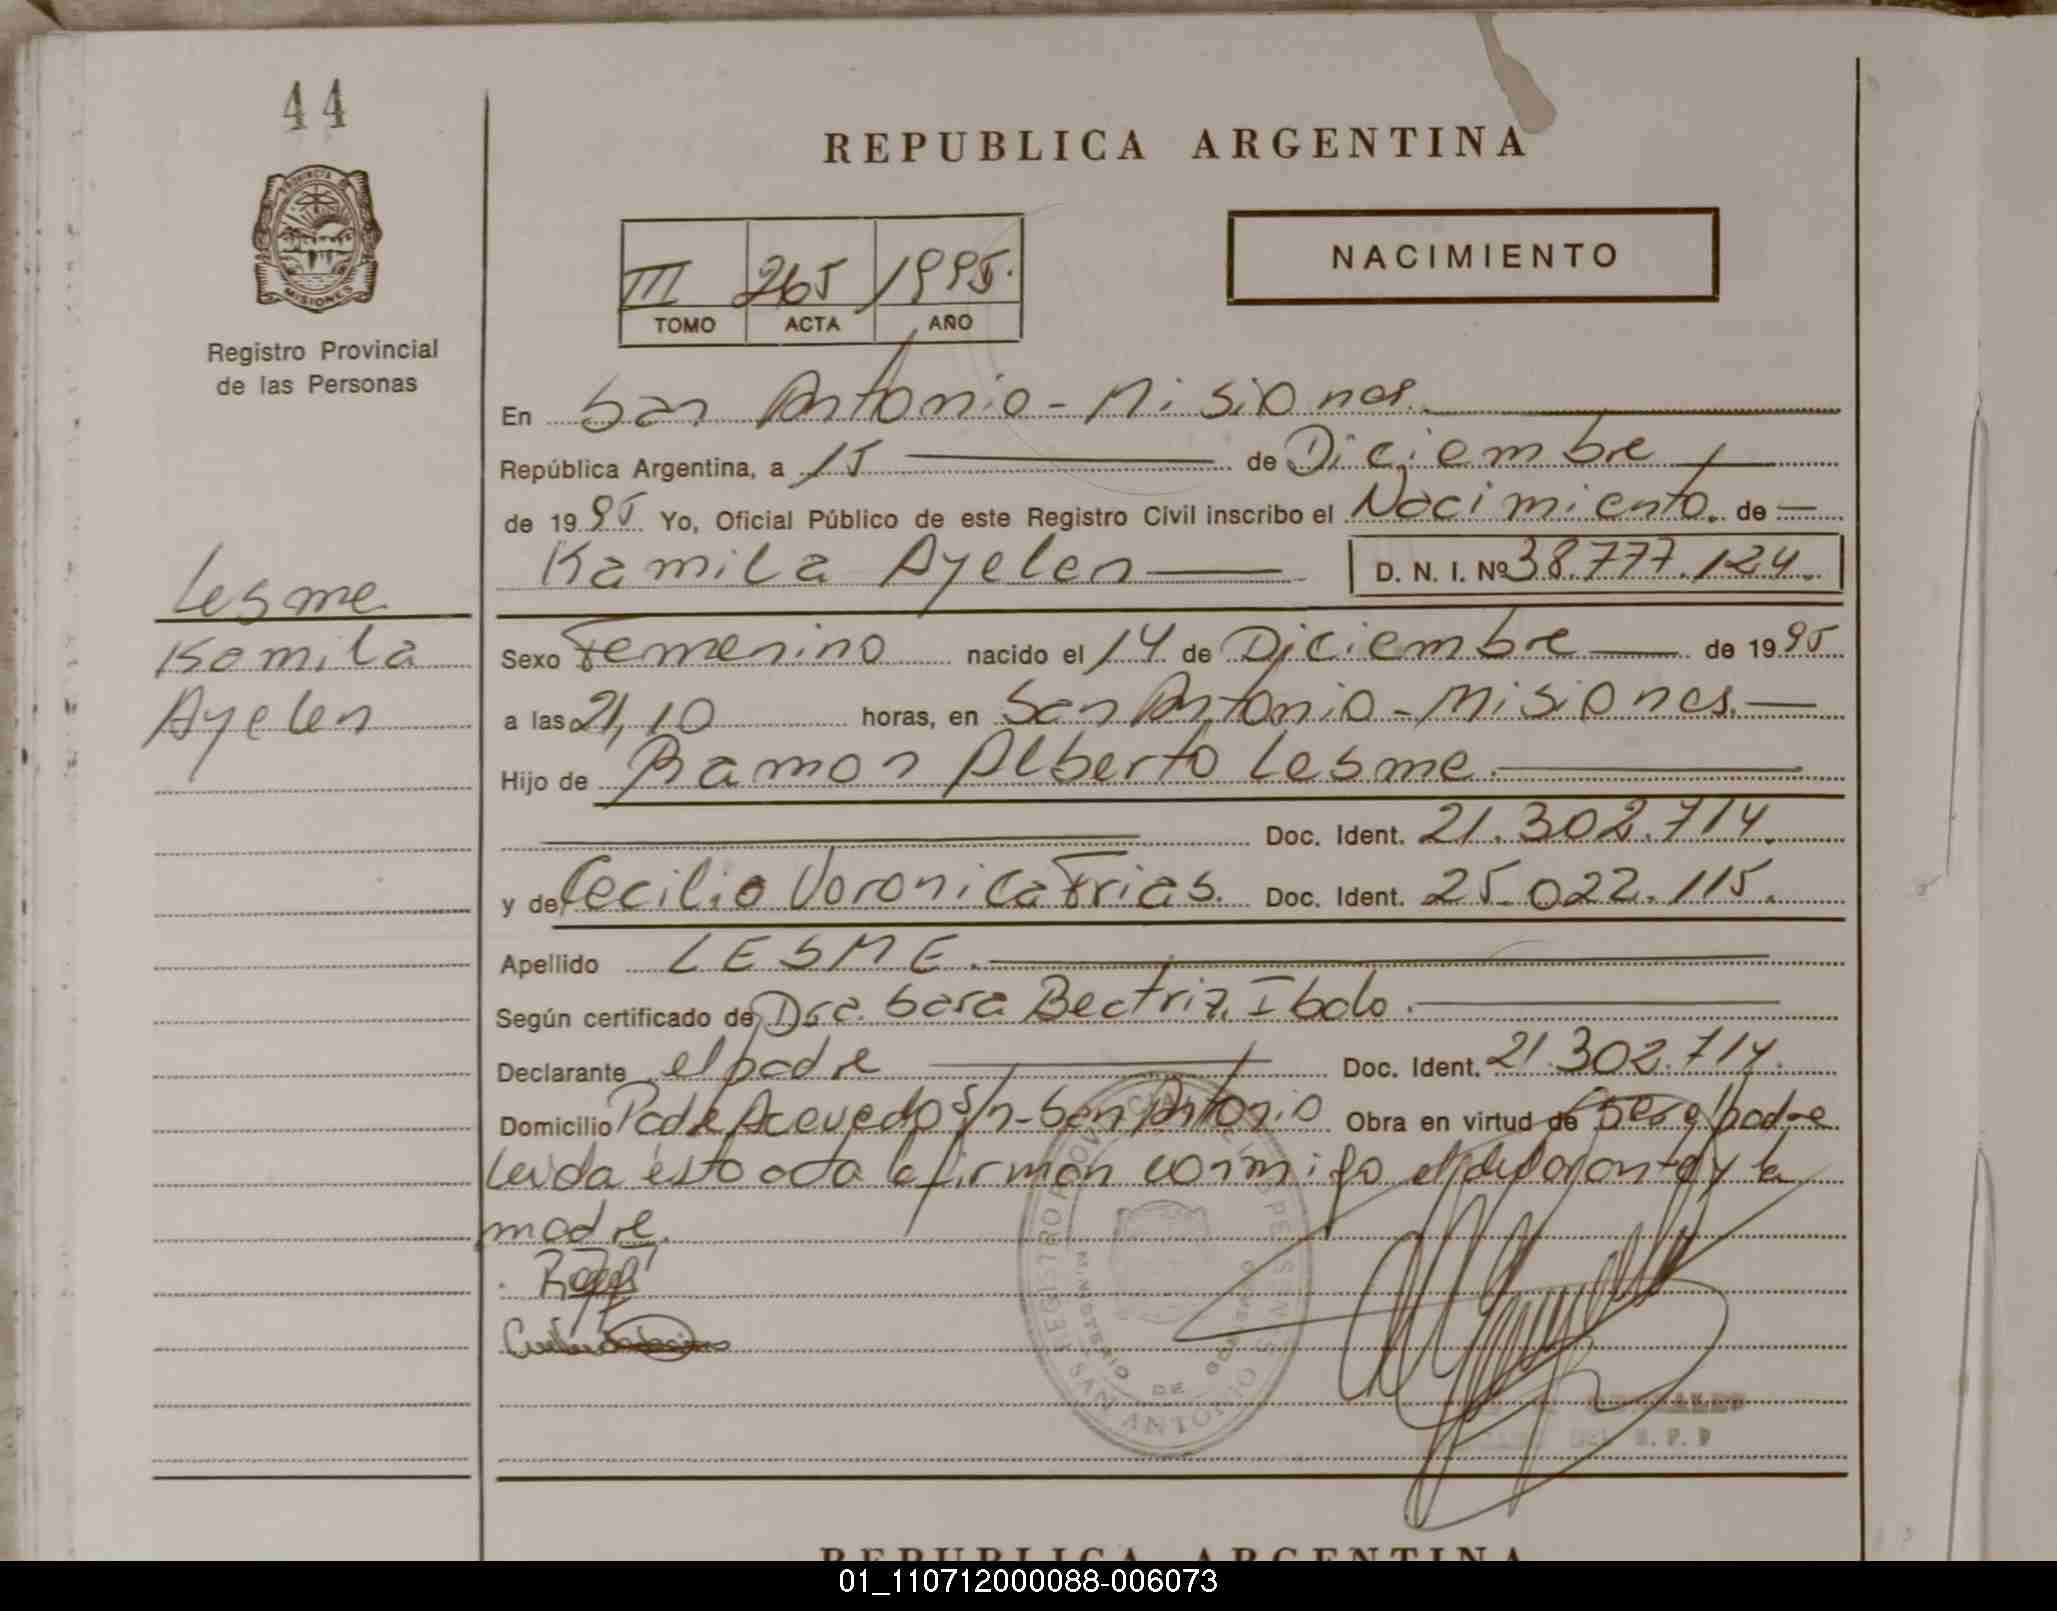 44
REPUBLICA ARGENTINA
NACIMIENTO
III 265 1995.
TOMO ACTA AÑO
PROVINCIA DE
MISIONES
Registro Provincial
de las Personas
En San Antonio - Misiones.
República Argentina, a 15 de Diciembre
de 1995 Yo, Oficial Público de este Registro Civil inscribo el Nacimiento. de
Kamila Ayelen D. N. I. Nº 38.777.124.
Lesme
Kamila
Ayelen
Sexo Femenino nacido el 14 de Diciembre de 1995
a las 21,10 horas, en San Antonio - Misiones.
Hijo de Ramon Alberto Lesme.
Doc. Ident. 21.302.714.
y de Cecilia Veronica Frias. Doc. Ident. 25.022.115.
Apellido LESME.
Según certificado de Dra. Sara Beatriz Ibalo.
Declarante el padre Doc. Ident. 21.302.714.
Domicilio Pdte Acevedo s/n - San Antonio Obra en virtud de Ser el padre
Leida esta acta la firman conmigo el declarante y la
madre.
REGISTRO PROVINCIAL DE LAS PERSONAS
MINISTERIO DE GOBIERNO
SAN ANTONIO
REPUBLICA ARGENTINA
01_110712000088-006073